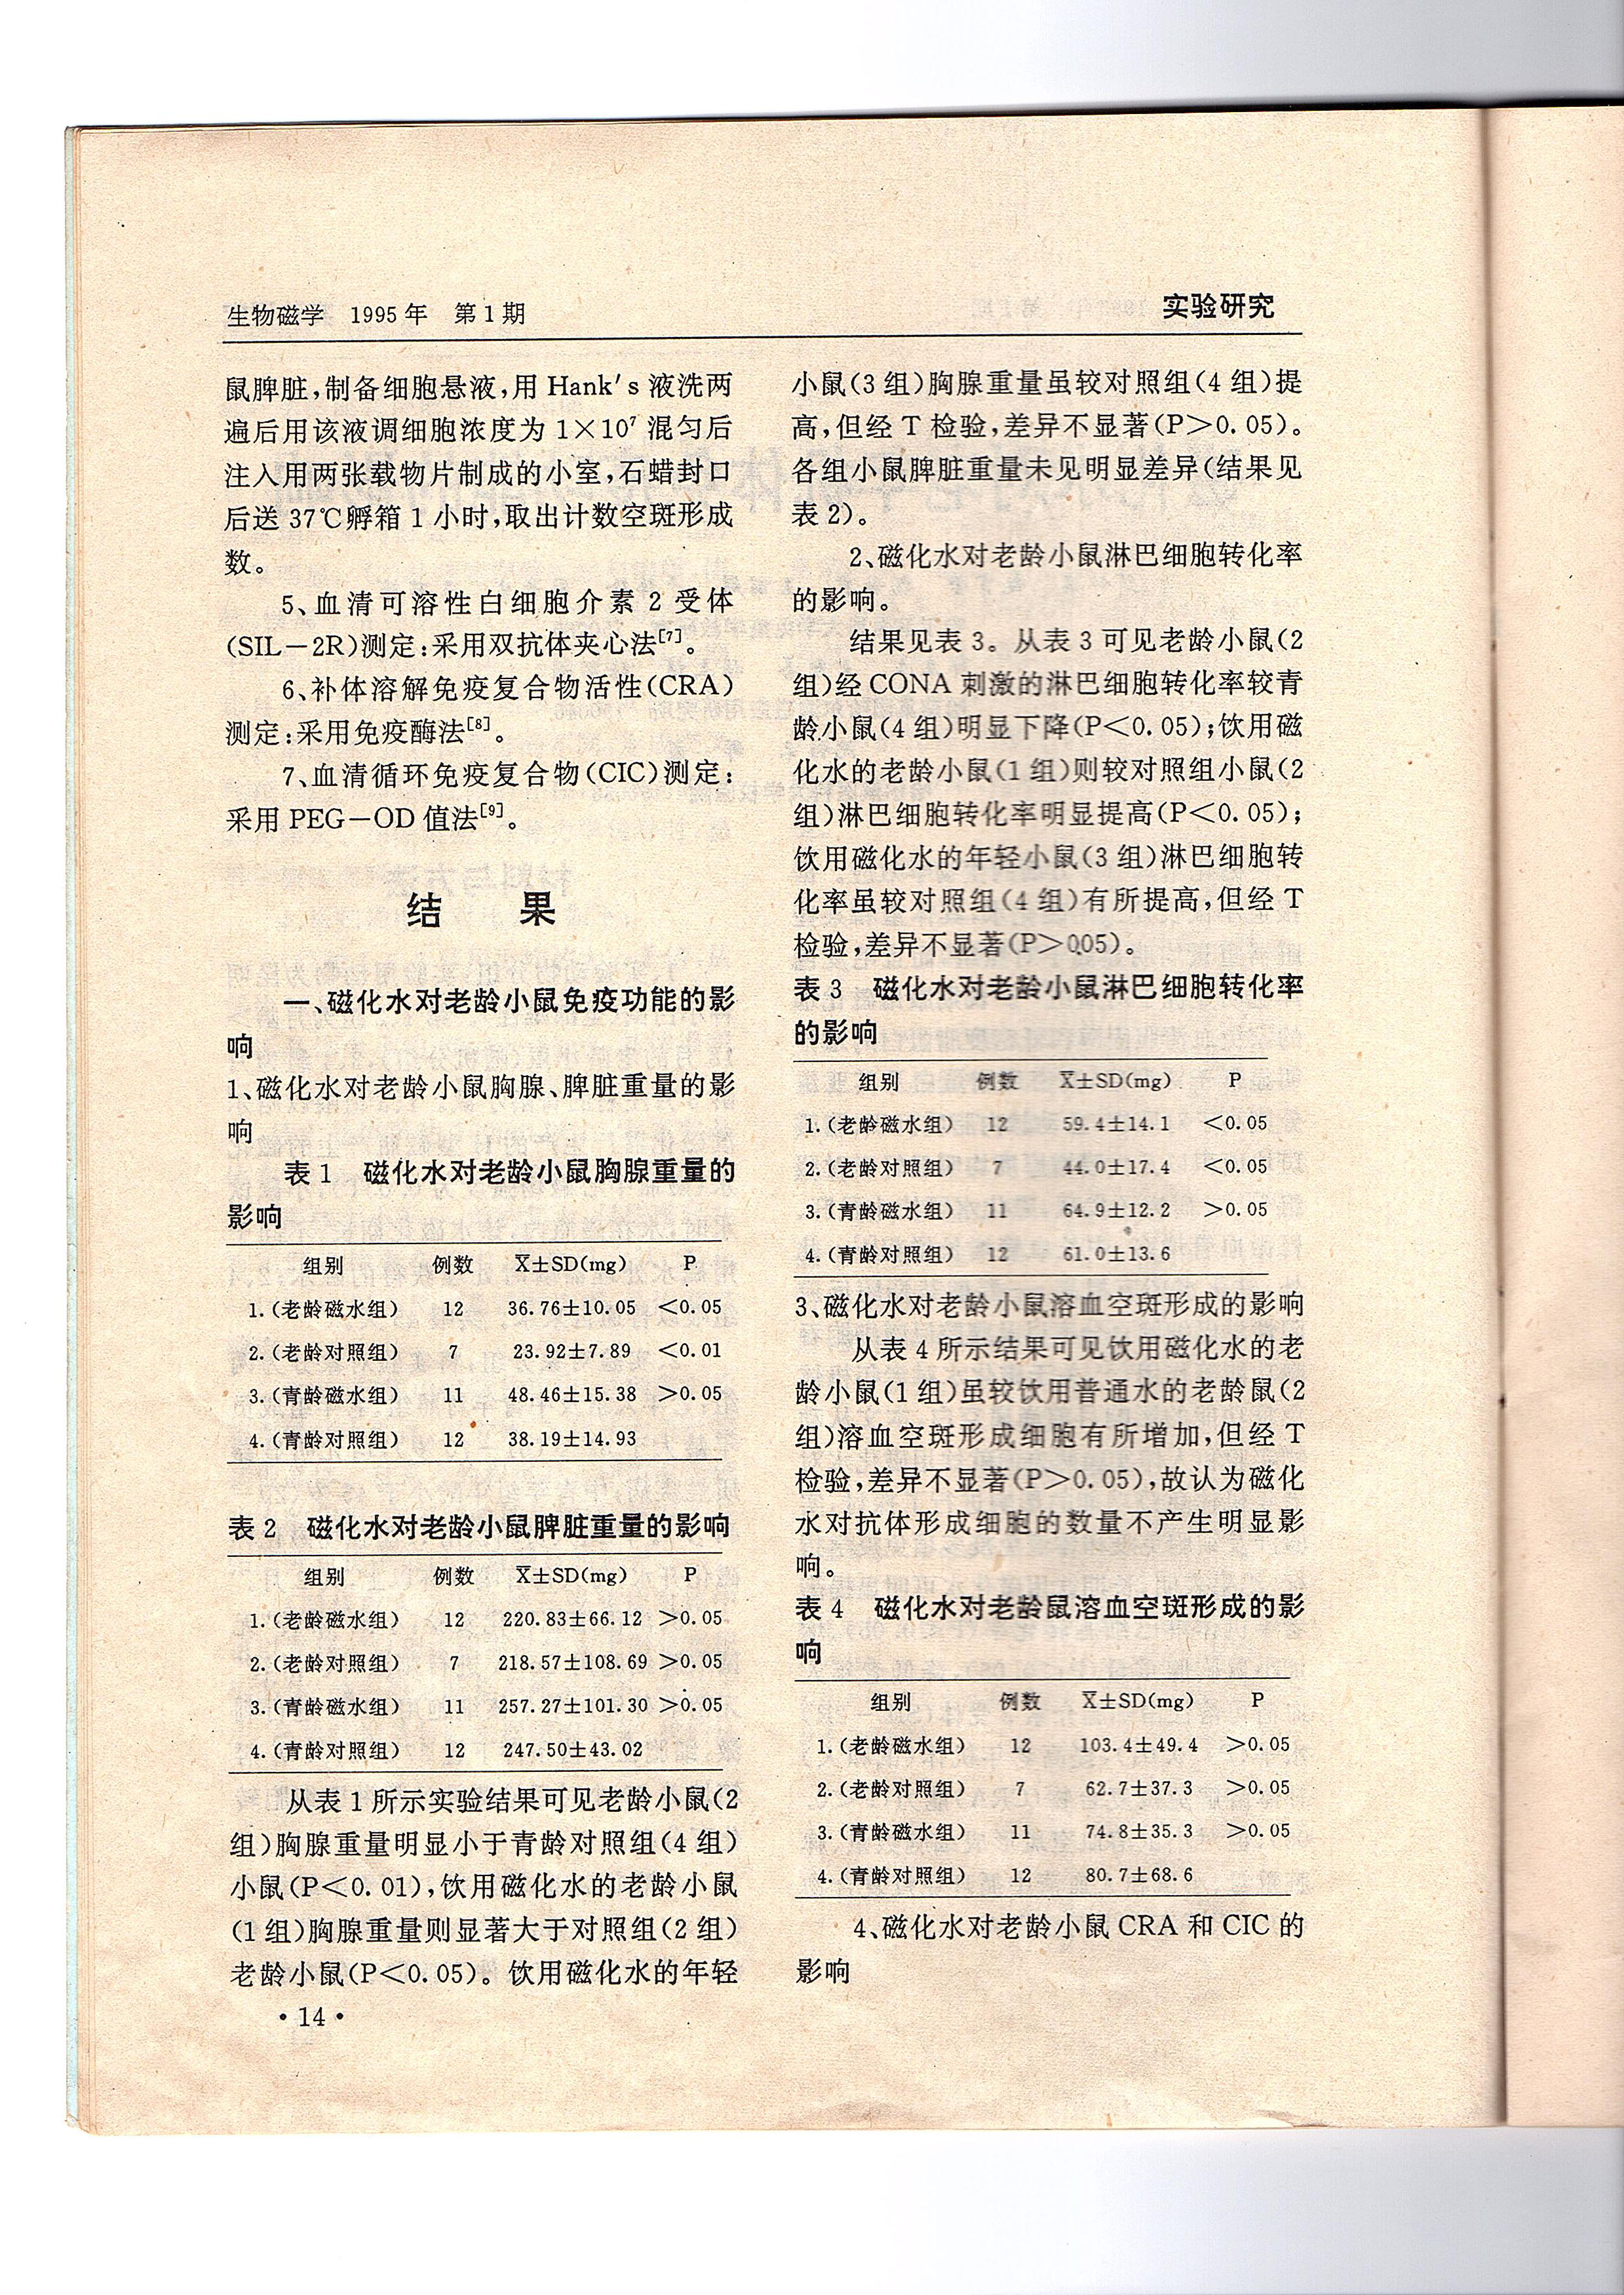 生物磁学 1995年 第1期
实验研究
鼠脾脏,制备细胞悬液,用 Hank's 液洗两
遍后用该液调细胞浓度为 1×10⁷ 混匀后
注入用两张载物片制成的小室,石蜡封口
后送 37℃孵箱 1 小时,取出计数空斑形成
数。
5、血清可溶性白细胞介素 2 受体
(SIL-2R)测定:采用双抗体夹心法[7]。
6、补体溶解免疫复合物活性(CRA)
测定:采用免疫酶法[8]。
7、血清循环免疫复合物(CIC)测定:
采用 PEG-OD 值法[9]。
结 果
一、磁化水对老龄小鼠免疫功能的影
响
1、磁化水对老龄小鼠胸腺、脾脏重量的影
响
表 1 磁化水对老龄小鼠胸腺重量的
影响
组别 例数 X̄±SD(mg) P
1.(老龄磁水组) 12 36.76±10.05 <0.05
2.(老龄对照组) 7 23.92±7.89 <0.01
3.(青龄磁水组) 11 48.46±15.38 >0.05
4.(青龄对照组) 12 38.19±14.93
表 2 磁化水对老龄小鼠脾脏重量的影响
组别 例数 X̄±SD(mg) P
1.(老龄磁水组) 12 220.83±66.12 >0.05
2.(老龄对照组) 7 218.57±108.69 >0.05
3.(青龄磁水组) 11 257.27±101.30 >0.05
4.(青龄对照组) 12 247.50±43.02
从表 1 所示实验结果可见老龄小鼠(2
组)胸腺重量明显小于青龄对照组(4 组)
小鼠(P<0.01),饮用磁化水的老龄小鼠
(1 组)胸腺重量则显著大于对照组(2 组)
老龄小鼠(P<0.05)。饮用磁化水的年轻
·14·
小鼠(3 组)胸腺重量虽较对照组(4 组)提
高,但经 T 检验,差异不显著(P>0.05)。
各组小鼠脾脏重量未见明显差异(结果见
表 2)。
2、磁化水对老龄小鼠淋巴细胞转化率
的影响。
结果见表 3。从表 3 可见老龄小鼠(2
组)经 CONA 刺激的淋巴细胞转化率较青
龄小鼠(4 组)明显下降(P<0.05);饮用磁
化水的老龄小鼠(1 组)则较对照组小鼠(2
组)淋巴细胞转化率明显提高(P<0.05);
饮用磁化水的年轻小鼠(3 组)淋巴细胞转
化率虽较对照组(4 组)有所提高,但经 T
检验,差异不显著(P>005)。
表 3 磁化水对老龄小鼠淋巴细胞转化率
的影响
组别 例数 X̄±SD(mg) P
1.(老龄磁水组) 12 59.4±14.1 <0.05
2.(老龄对照组) 7 44.0±17.4 <0.05
3.(青龄磁水组) 11 64.9±12.2 >0.05
4.(青龄对照组) 12 61.0±13.6
3、磁化水对老龄小鼠溶血空斑形成的影响
从表 4 所示结果可见饮用磁化水的老
龄小鼠(1 组)虽较饮用普通水的老龄鼠(2
组)溶血空斑形成细胞有所增加,但经 T
检验,差异不显著(P>0.05),故认为磁化
水对抗体形成细胞的数量不产生明显影
响。
表 4 磁化水对老龄鼠溶血空斑形成的影
响
组别 例数 X̄±SD(mg) P
1.(老龄磁水组) 12 103.4±49.4 >0.05
2.(老龄对照组) 7 62.7±37.3 >0.05
3.(青龄磁水组) 11 74.8±35.3 >0.05
4.(青龄对照组) 12 80.7±68.6
4、磁化水对老龄小鼠 CRA 和 CIC 的
影响